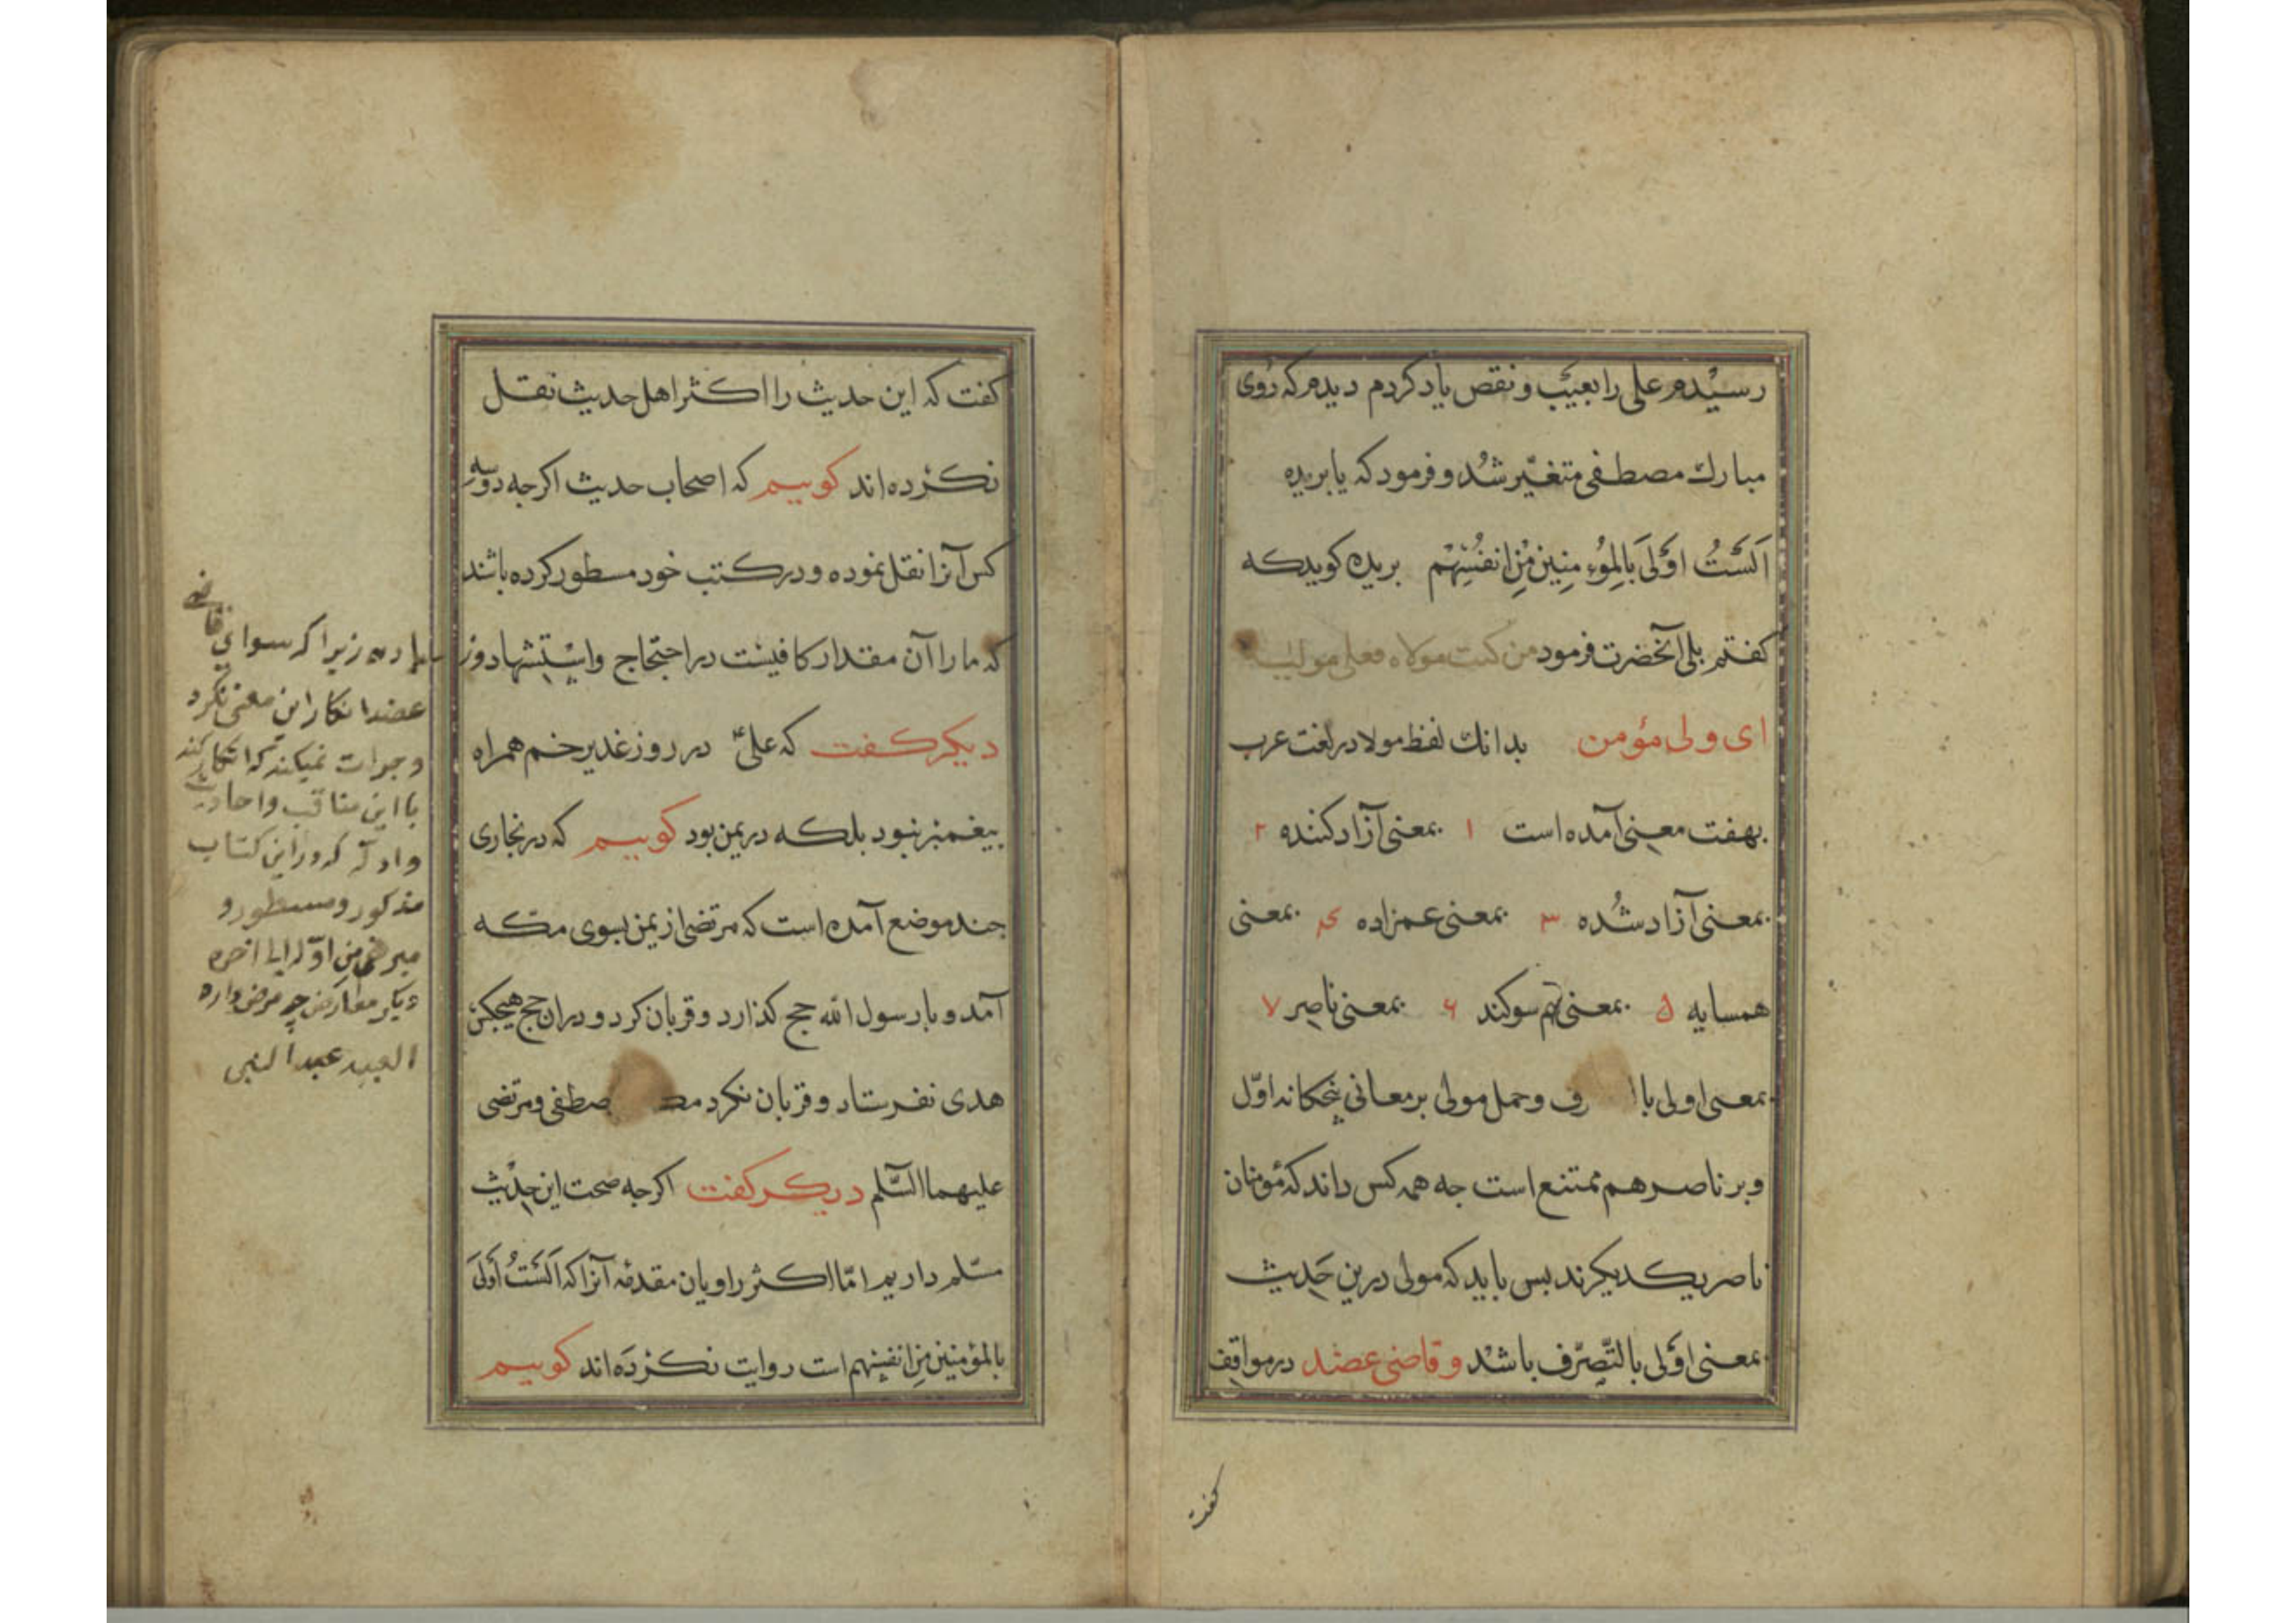 رسیدم علی را بعیب و نقص یاد کردم دیدم که روی
مبارك مصطفی متغیّر شد و فرمود که یا بریده
اَلَسْتُ اَوْلَی بِالمُؤمِنِین مِن اَنفُسِهِم بریده کوید که
کفتم بلی آنحضرت فرمود من کنت مولاه فعلی مولیه
ای ولی مؤمن بدانك لفظ مولا در لغت عرب
بهفت معنی آمده است ۱ بمعنی آزاد کننده ۲
بمعنی آزاد شُده ۳ بمعنی عمزاده ۴ بمعنی
همسایه ۵ بمعنی هم سوکند ۶ بمعنی ناصر ۷
بمعنی اولی با رف و حمل مولی بر معانی پنجکانه اوّل
و بر ناصر هم ممتنع است جه همه کس داند که مؤمنان
ناصر یکدیکرند بس باید که مولی درین حَدیث
بمعنی اَوْلی بالتَّصرّف باشد و قاضی عضد در مواقف
کفت
کفت که این حدیث را اکثر اهل حدیث نقل
نکرده اند کوییم که اصحاب حدیث اکرجه دو سه
کس آنرا نقل نموده و در کتب خود مسطور کرده باشند
که ما را آن مقدار کافیست در احتجاج و استشهاد و ز
دیکر کفت که علیّ در روز غدیر خم همراه
بیغمبر نبود بلکه در یمن بود کوییم که در بخاری
جند موضع آمده است که مرتضی از یمن بسوی مکه
آمد و با رسول الله حج کذارد و قربان کرد و در ان حج هیجکس
هدی نفرستاد و قربان نکرد مصطفی و مرتضی
علیهما السّلم دیکر کفت اکرجه صحت این حدیث
مسّلم داریم امّا اکثر راویان مقدمهٔ آنرا که اَلَسْتُ اَولَی
بالمؤمنین مِن انفسهم است روایت نکرده اند کوییم
زیرا که سوای قاضی
عضد انکار این معنی نکرد
و جرات نمیکند که انکار کند
با این مناقب و احادیث
و ادلّه که در این کتاب
مذکور و مسطور و
من اوّله الی اخره
دیکر معارض چه غرض دارد
العبد عبد النبی